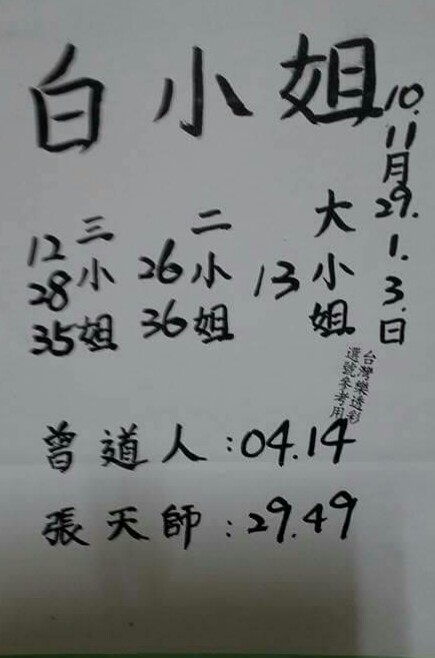 白小姐
10.11月29.1.3.日
大小姐
13
二小姐
26
36
三小姐
12
28
35
台灣樂透彩
選號參考用
曾道人:04.14
張天師:29.49